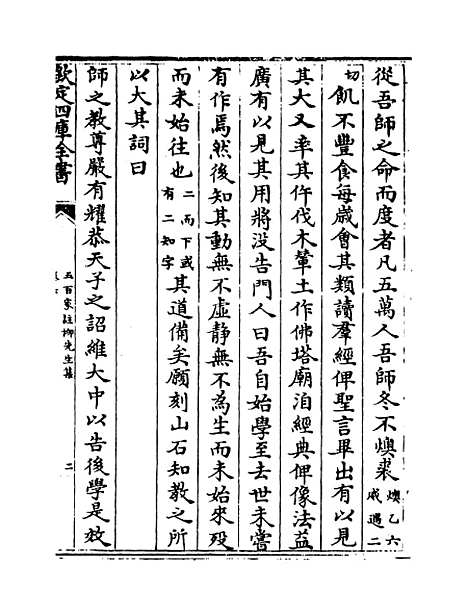 從吾師之命而度者凡五萬人吾師冬不燠裘燠乙六或遏二
切飢不豐食每歲會其類讀羣經俾聖言畢出有以見
其大又率其伻伐木輦土作佛塔廟洎經典俾像法益
廣有以見其用將没告門人曰吾自始學至去世未嘗
有作焉然後知其動無不虛静無不為生而未始來殁
而未始往也二而下或有二知字其道備矣願刻山石知教之所
以大其詞曰
師之教尊嚴有耀恭天子之詔維大中以告後學是效
欽定四庫全書
五百家註柳先生集
二